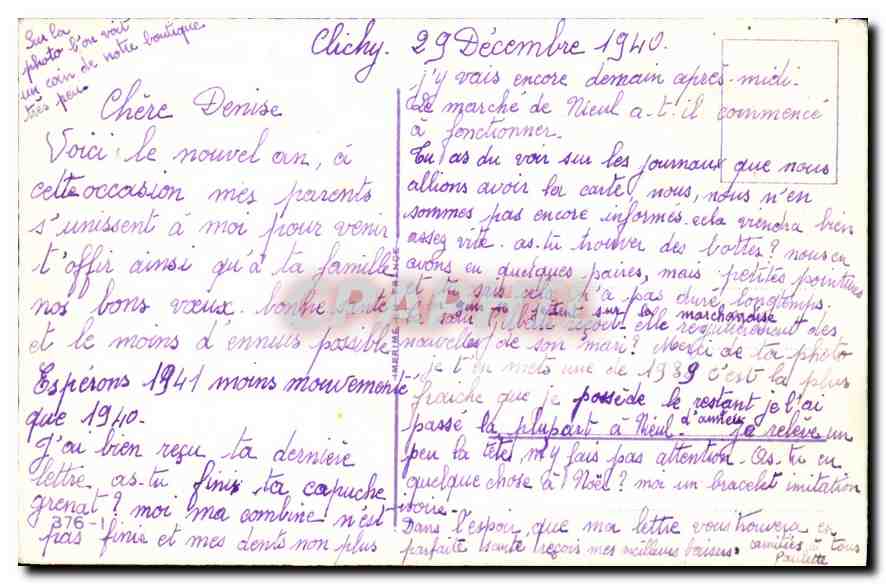 Sur la
photo l'on voit
un coin de notre boutique
très peu
Clichy. 29 Décembre 1940.
Chère Denise
Voici le nouvel an, à
cette occasion mes parents
s'unissent à moi pour venir
t'offir ainsi qu'à ta famille
nos bons vœux. bonne santé
et le moins d'ennuis possible
Espérons 1941 moins mouvementé
que 1940.
J'ai bien reçu ta dernière
lettre as-tu finis ta capuche
grenat? moi ma combine n'est
pas finie et mes dents non plus
376-1
IMERIE FRANCE
j'y vais encore demain après-midi.
Le marché de Nieul a-t-il commencé
à fonctionner.
Tu as du voir sur les journaux que nous
allions avoir la carte nous, nous n'en
sommes pas encore informés. cela viendra bien
assez vite. as-tu trouver des bottes? nous en
avons eu quelques paires, mais petites pointures
et tu sais cela n'a pas duré longtemps.
on se jettent sur la marchandise
ta sœur reçoit-elle régulièrement des
nouvelles de son mari? Merci de ta photo
je t'en mets une de 1939 c'est la plus
fraiche que je possède le restant je l'ai
passé la plupart à Nieul. d'ailleurs je relève un
peu la tête m'y fais pas attention. As-tu eu
quelque chose à Noël? moi un bracelet imitation
ivoire.
Dans l'espoir que ma lettre vous trouvera en
parfaite santé reçois mes meilleurs baisers. amitiés à tous
Paulette